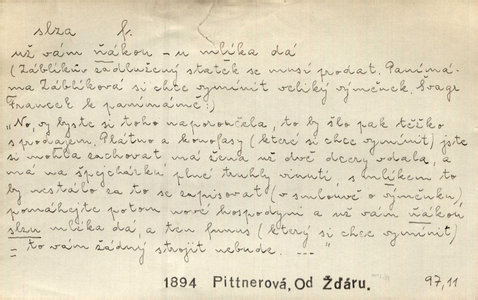 slza f.
už vám ňákou – u mlíka dá
(Záblíkův zadlužený statek se musí prodat. Panímá-
ma Záblíková si chce vymínit veliký výměnek. Švagr
Francek k panímámě:)
„No, vy byste si toho naporoučela, to by šlo pak těžko
s prodajem. Plátno a konopasy (které si chce vymínit) jste
si mohla zachovat, má žena už dvě dcery vdala, a
má na špejchárku plné truhly vinutí, s mlíkem to
by nestálo za to se zapisovat (v smlouvě o výměnku)
pomáhejte potom nové hospodyni a už vám ňákou
slzu mlíka dá, a ten funus (který si chce vymínit)
– to vám žádný strojit nebude. ---"
1894 Pittnerová, Od Žďáru. 97,11